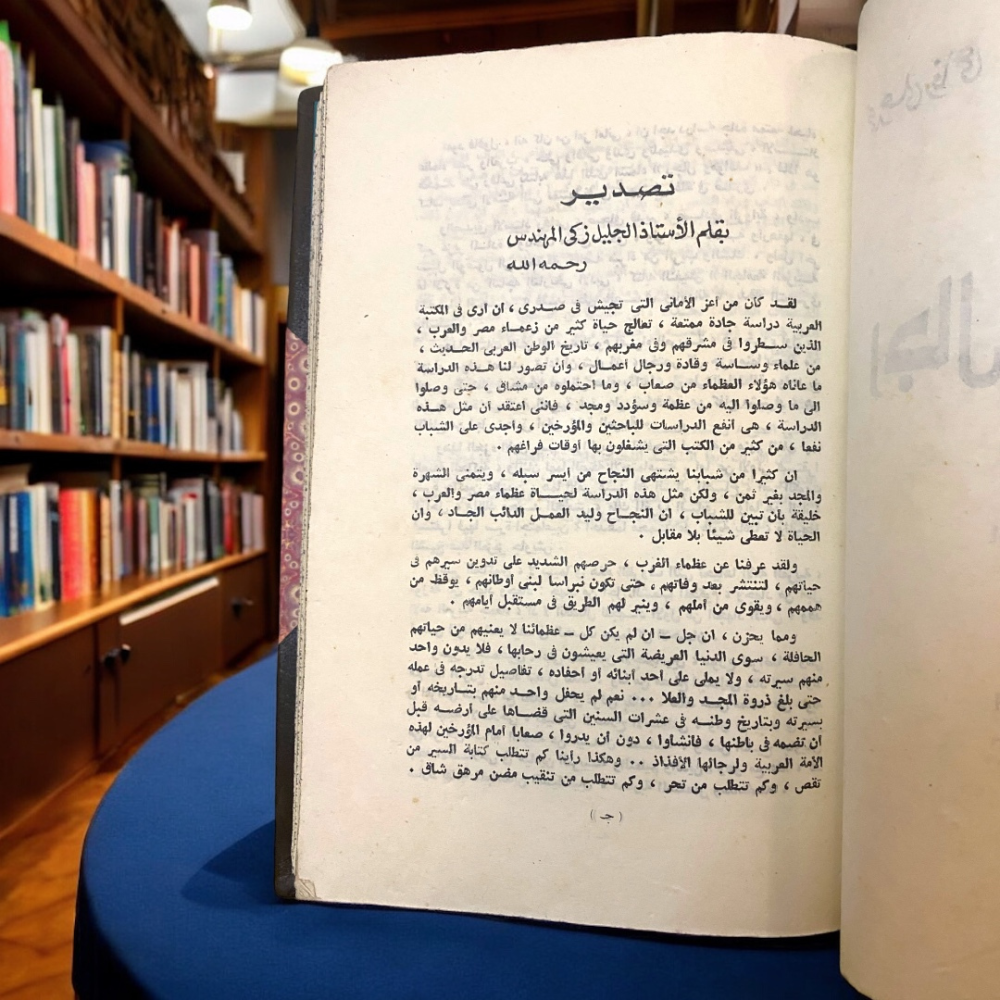 تصدير
بقلم الأستاذ الجليل زكى المهندس
رحمه الله
لقد كان من أعز الأمانى التى تجيش فى صدرى ، أن أرى فى المكتبة
العربية دراسة جادة ممتعة ، تعالج حياة كثير من زعماء مصر والعرب ،
الذين سطروا فى مشرقهم وفى مغربهم ، تاريخ الوطن العربى الحديث ،
من علماء وساسة وقادة ورجال أعمال ، وأن تصور لنا هذه الدراسة
ما عاناه هؤلاء العظماء من صعاب ، وما احتملوه من مشاق ، حتى وصلوا
الى ما وصلوا اليه من عظمة وسؤدد ومجد ، فاننى أعتقد أن مثل هذه
الدراسة ، هى أنفع الدراسات للباحثين والمؤرخين ، وأجدى على الشباب
نفعا ، من كثير من الكتب التى يشغلون بها أوقات فراغهم .
ان كثيرا من شبابنا يشتهى النجاح من أيسر سبله ، ويتمنى الشهرة
والمجد بغير ثمن ، ولكن مثل هذه الدراسة لحياة عظماء مصر والعرب ،
خليقة بأن تبين للشباب ، أن النجاح وليد العمل الدائب الجاد ، وأن
الحياة لا تعطى شيئا بلا مقابل .
ولقد عرفنا عن عظماء الغرب ، حرصهم الشديد على تدوين سيرهم فى
حياتهم ، لتنتشر بعد وفاتهم ، حتى تكون نبراسا لبنى أوطانهم ، يوقظ من
هممهم ، ويقوى من أملهم ، وينير لهم الطريق فى مستقبل أيامهم .
ومما يحزن ، أن جل ــ ان لم يكن كل ــ عظمائنا لا يعنيهم من حياتهم
الحافلة ، سوى الدنيا العريضة التى يعيشون فى رحابها ، فلا يدون واحد
منهم سيرته ، ولا يملى على أحد أبنائه أو أحفاده ، تفاصيل تدرجه فى عمله
حتى بلغ ذروة المجد والعلا ... نعم لم يحفل واحد منهم بتاريخه أو
بسيرته وبتاريخ وطنه فى عشرات السنين التى قضاها على أرضه قبل
أن تضمه فى باطنها ، فأنشأوا ، دون أن يدروا ، صعابا أمام المؤرخين لهذه
الأمة العربية ولرجالها الأفذاذ .. وهكذا رأينا كم تتطلب كتابة السير من
تقص ، وكم تتطلب من تحر ، وكم تتطلب من تنقيب مضن مرهق شاق .
( ج )